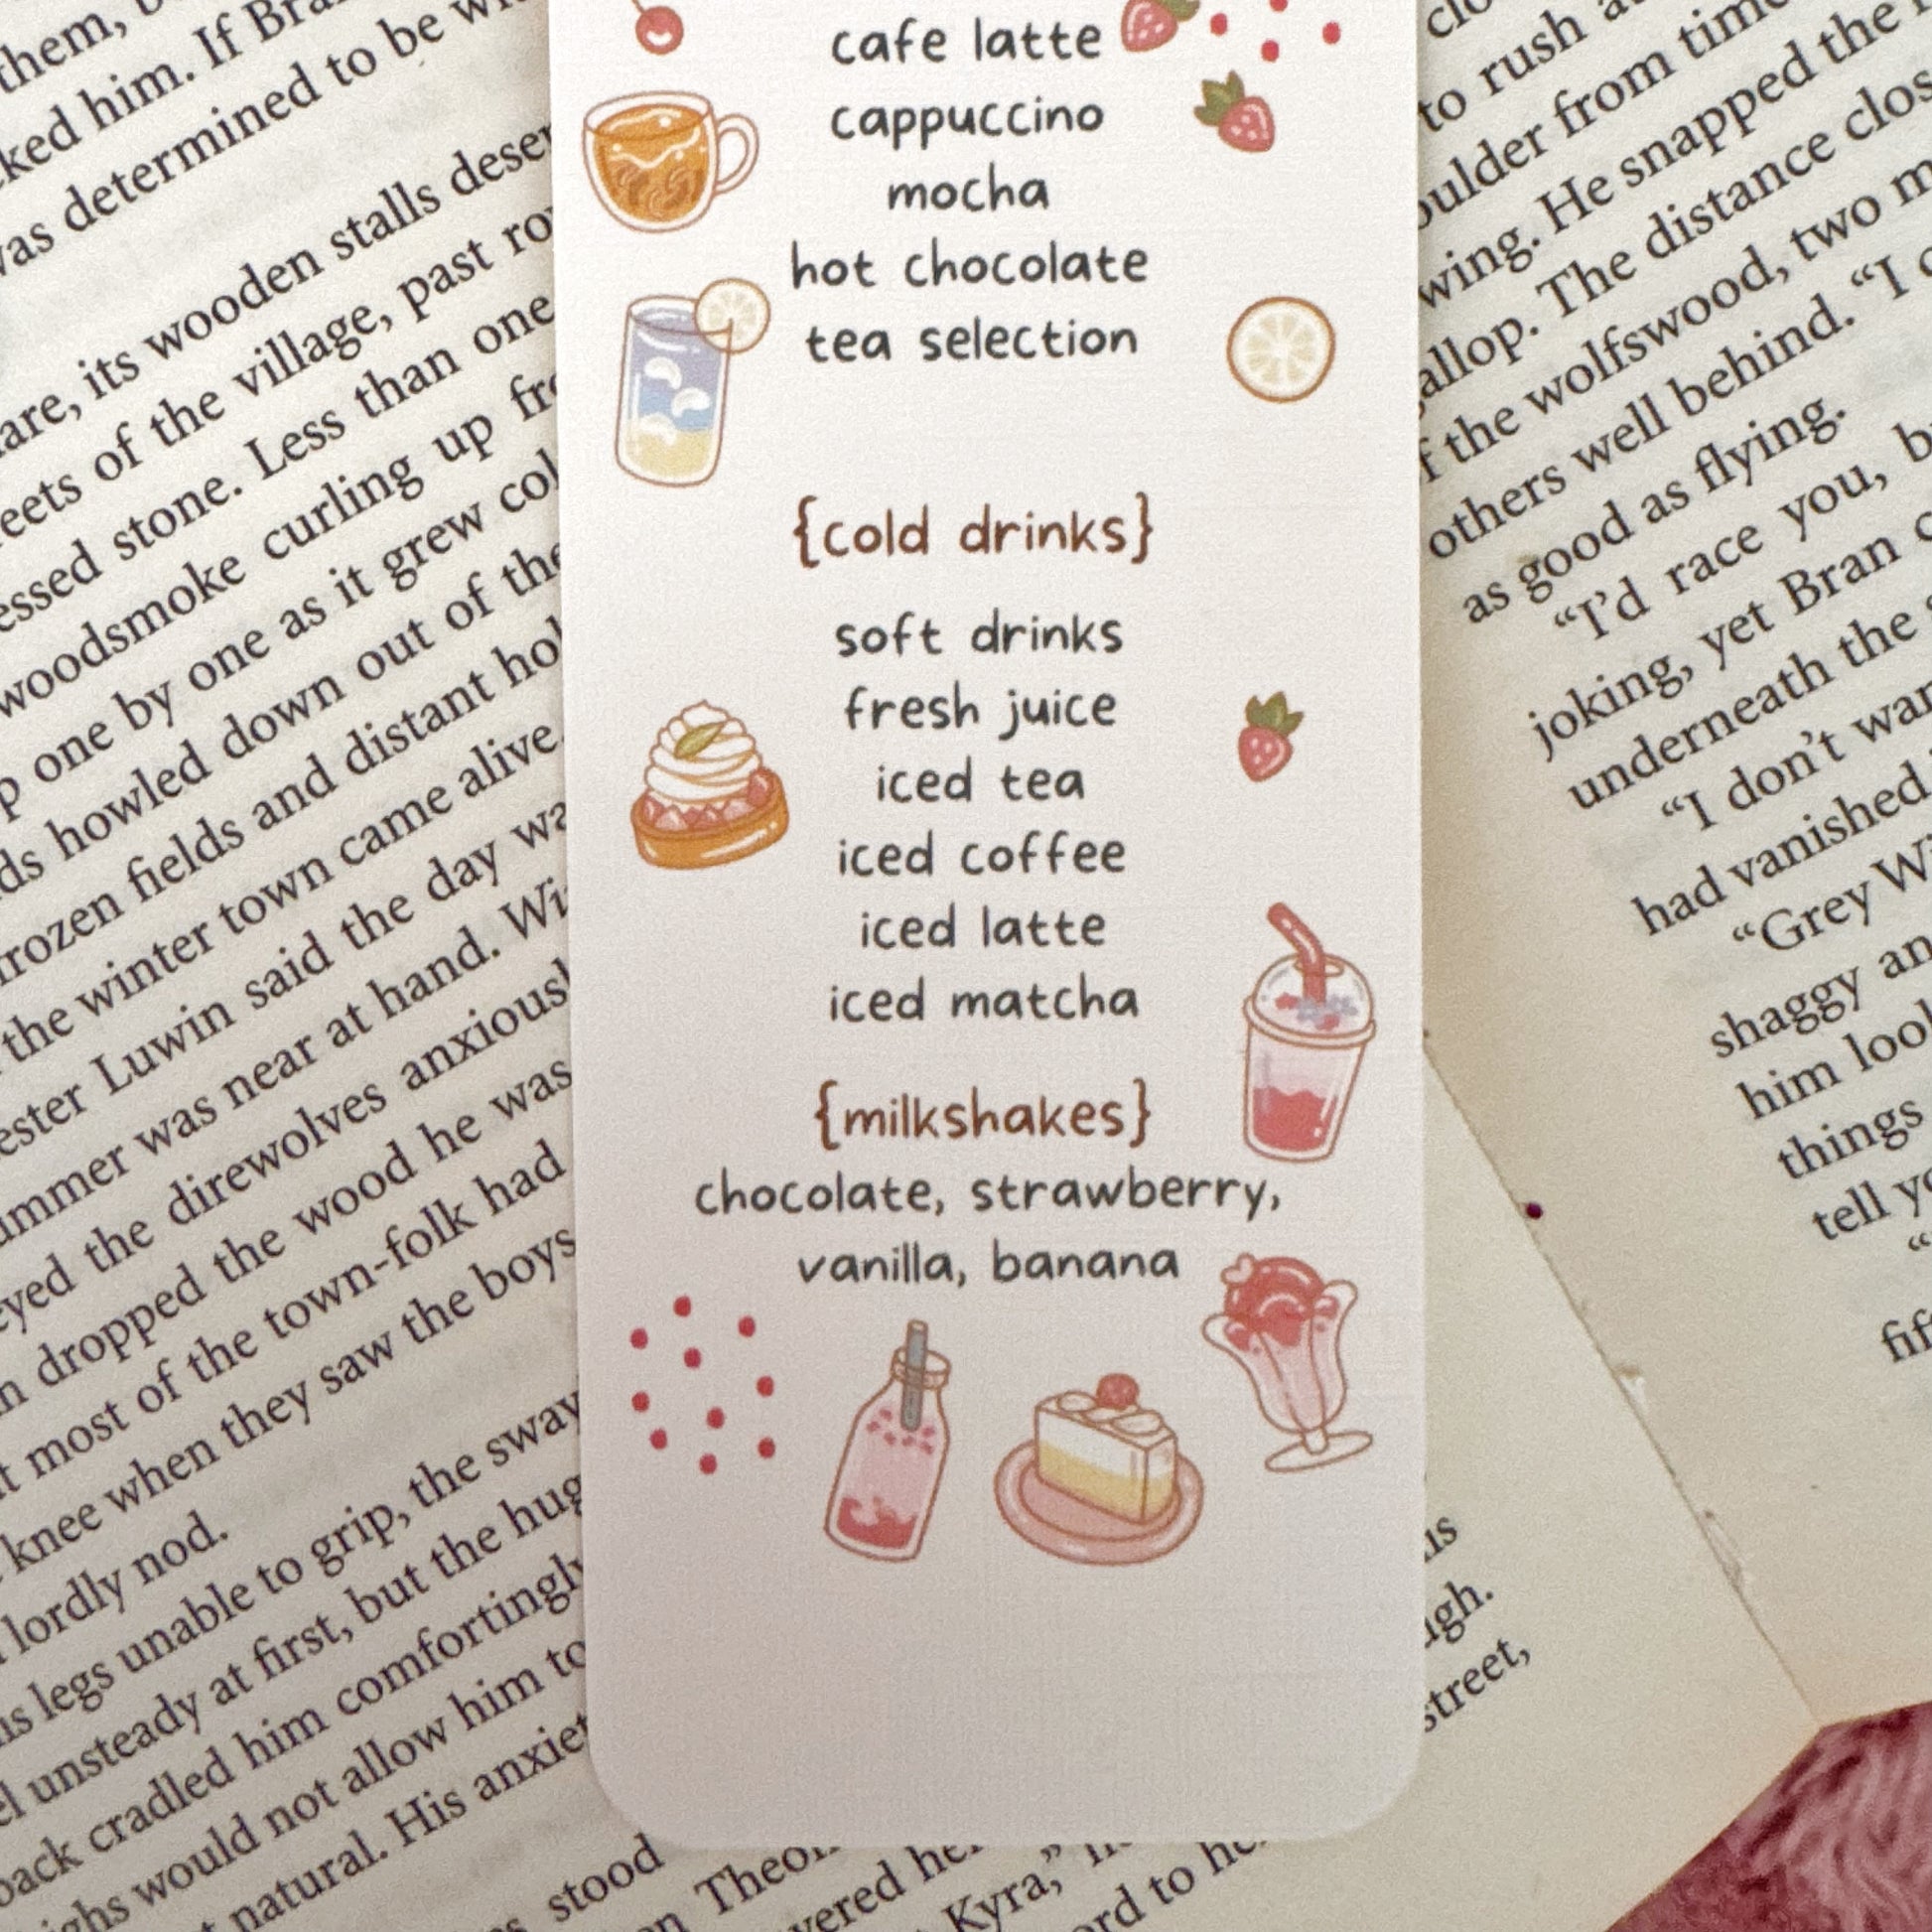 cafe latte
cappuccino
mocha
hot chocolate
tea selection
{cold drinks}
soft drinks
fresh juice
iced tea
iced coffee
iced latte
iced matcha
{milkshakes}
chocolate, strawberry,
vanilla, banana
them,
him. If
was determined to be
its wooden stalls
of the village, past
stone. Less than one
woodsmoke curling up
one by one as it grew
howled down out of
fields and distant
the winter town came alive.
Luwin said the day
was near at hand.
the direwolves
dropped the wood he was
most of the town-folk had
knee when they saw the boys
lordly nod.
legs unable to grip, the
unsteady at first, but the
back cradled him comfortingly
would not allow him to
natural. His
stood
Kyra,”
to rush
from
wing. He snapped the
The distance
the wolfswood, two
others well behind. “I
as good as flying.
“I’d race you,
joking, yet Bran
underneath the
“I don’t
had vanished
“Grey
shaggy
him
things
tell
street,